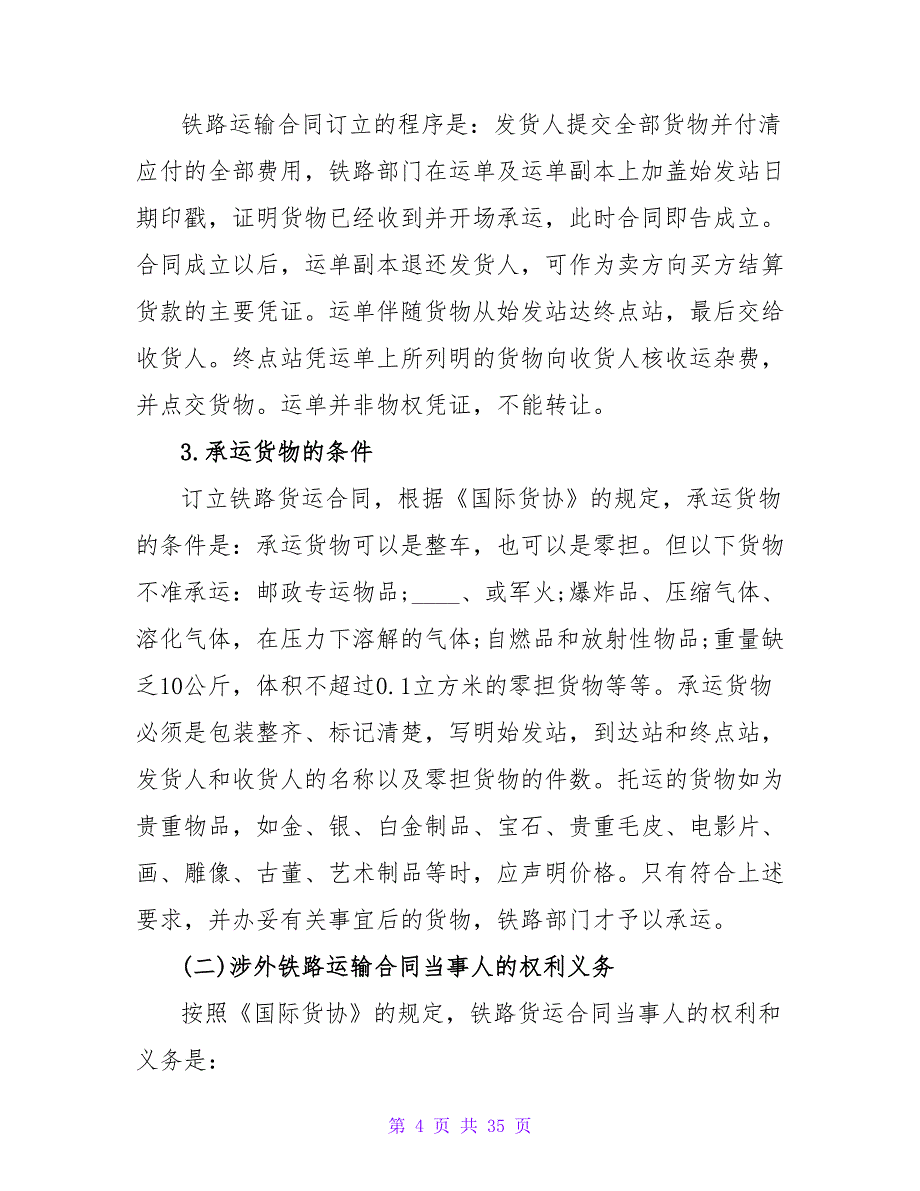 铁路运输合同订立的程序是：发货人提交全部货物并付清
应付的全部费用，铁路部门在运单及运单副本上加盖始发站日
期印戳，证明货物已经收到并开场承运，此时合同即告成立。
合同成立以后，运单副本退还发货人，可作为卖方向买方结算
货款的主要凭证。运单伴随货物从始发站达终点站，最后交给
收货人。终点站凭运单上所列明的货物向收货人核收运杂费，
并点交货物。运单并非物权凭证，不能转让。
3.承运货物的条件
订立铁路货运合同，根据《国际货协》的规定，承运货物
的条件是：承运货物可以是整车，也可以是零担。但以下货物
不准承运：邮政专运物品;____、或军火;爆炸品、压缩气体、
溶化气体，在压力下溶解的气体;自燃品和放射性物品;重量缺
乏10公斤，体积不超过0.1立方米的零担货物等等。承运货物
必须是包装整齐、标记清楚，写明始发站，到达站和终点站，
发货人和收货人的名称以及零担货物的件数。托运的货物如为
贵重物品，如金、银、白金制品、宝石、贵重毛皮、电影片、
画、雕像、古董、艺术制品等时，应声明价格。只有符合上述
要求，并办妥有关事宜后的货物，铁路部门才予以承运。
(二)涉外铁路运输合同当事人的权利义务
按照《国际货协》的规定，铁路货运合同当事人的权利和
义务是：
第 4 页 共 35 页